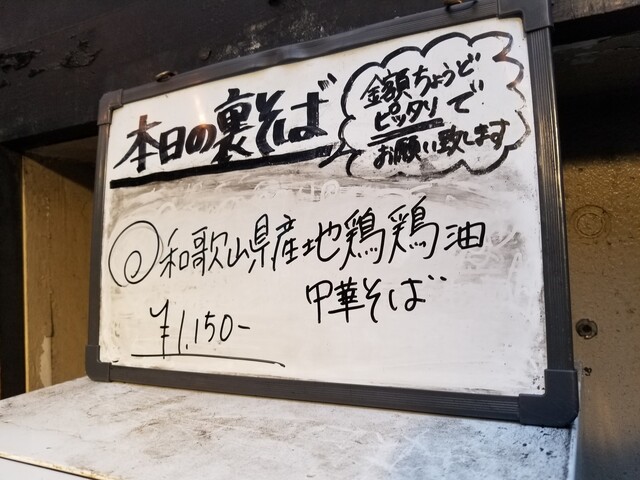 本日の裏そば
金額ちょうど
ピッタリで
お願い致します
和歌山県産地鶏鶏油
中華そば
¥1,150-